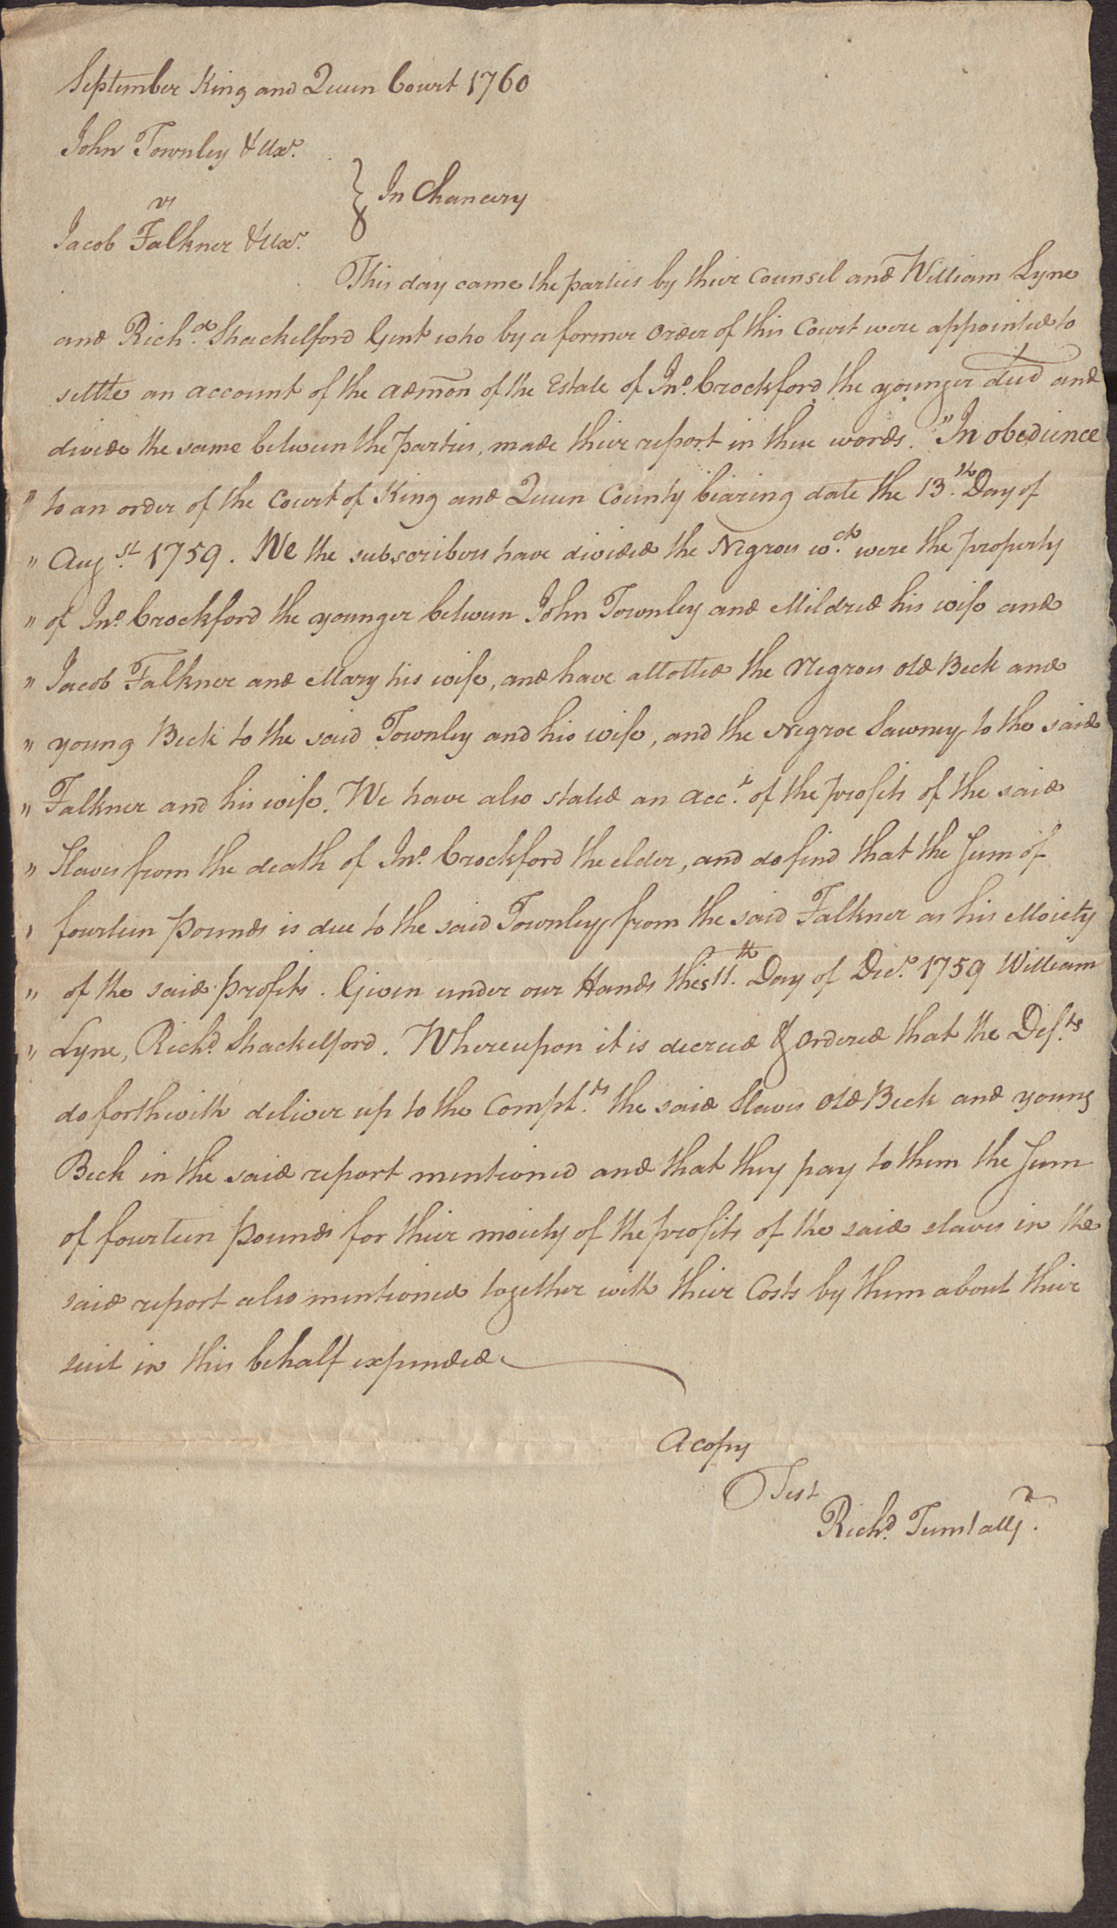 September King and Queen Court 1760
John Townley & Uxr.
vs } In Chancery
Jacob Falkner & Uxr.
This day came the parties by their Counsel and William Lyne
and Richd. Shackelford Gent who by a former order of this Court were appointed to
settle an account of the admon of the Estate of Jno. Crockford the younger decd and
divide the same between the Parties, made their report in these words. "In obedience
" to an order of the Court of King and Queen County bearing date the 13.th Day of
" Augst. 1759. We the subscribers have divided the Negroes wch. were the property
" of Jno. Crockford the younger between John Townley and Mildred his wife and
" Jacob Falkner and Mary his wife, and have allotted the Negroes Old Beck and
" young Beck to the said Townley and his wife, and the Negroe Sawney to the said
" Falkner and his wife. We have also stated an Acct. of the profits of the said
" Slaves from the death of Jno. Crockford the elder, and do find that the Sum of
' fourteen Pounds is due to the said Townley from the said Falkner as his Moiety
" of the said profits. Given under our Hands this 11.th Day of Decr. 1759 William
" Lyne, Richd. Shackelford. Whereupon it is decreed & ordered that the Defts.
do forthwith deliver up to the Complts. the said Slaves Old Beck and young
Beck in the said report mentioned and that they pay to them the Sum
of fourteen Pounds for their moiety of the profits of the said slaves in the
said report also mentioned together with their Costs by them about their
suit in this behalf expended
A copy
Test
Richd. Tunstall